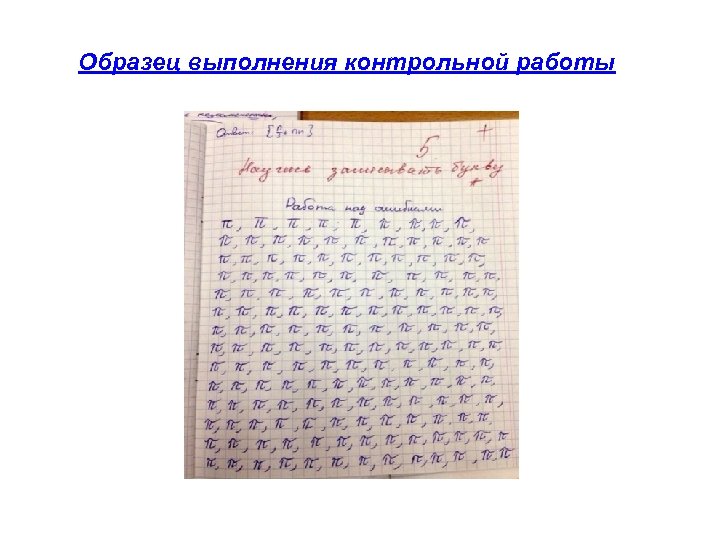 Образец выполнения контрольной работы
Ответ: {π/2 + πn}
5 +
Научись записывать букву π
Работа над ошибками
π, π, π, π, π, π, π, π, π, π,
π, π, π, π, π, π, π, π, π, π, π, π
π, π, π, π, π, π, π, π, π, π, π,
π, π, π, π, π, π, π, π, π, π,
π, π, π, π, π, π, π, π, π, π, π,
π, π, π, π, π, π, π, π, π, π, π, π,
π, π, π, π, π, π, π, π, π, π, π,
π, π, π, π, π, π, π, π, π, π, π,
π, π, π, π, π, π, π, π, π, π, π,
π, π, π, π, π, π, π, π, π, π, π,
π, π, π, π, π, π, π, π, π, π, π,
π, π, π, π, π, π, π, π, π, π, π,
π, π, π, π, π, π, π, π, π, π, π, π
π, π, π, π, π, π, π, π, π, π, π, π